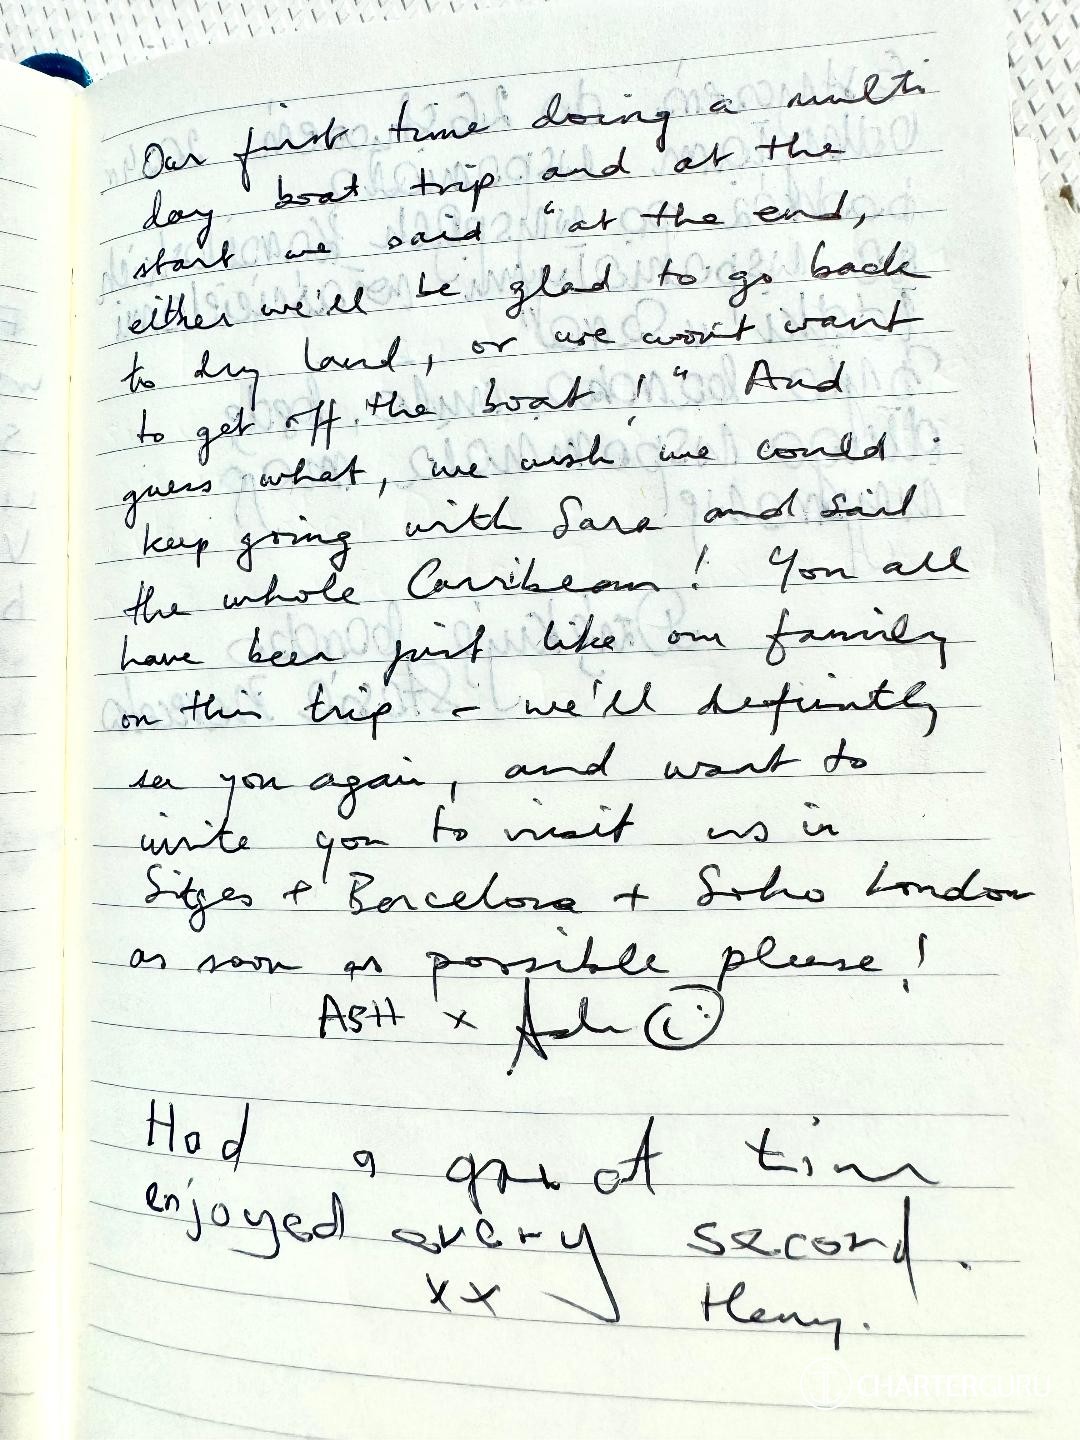 Our first time doing a multi
day boat trip and at the
start we said "at the end,
either we'll be glad to go back
to dry land, or we won't want
to get off the boat!" And
guess what, we wish we could
keep going with Sara and sail
the whole Carribean! You all
have been just like our family
on this trip - we'll defintly
see you again, and want to
invite you to visit us in
Sitges + Barcelona + Soho London
as soon as possible please!
ASH x Ash
Had a great time
enjoyed every second.
xx Henry.
CHARTERGURU